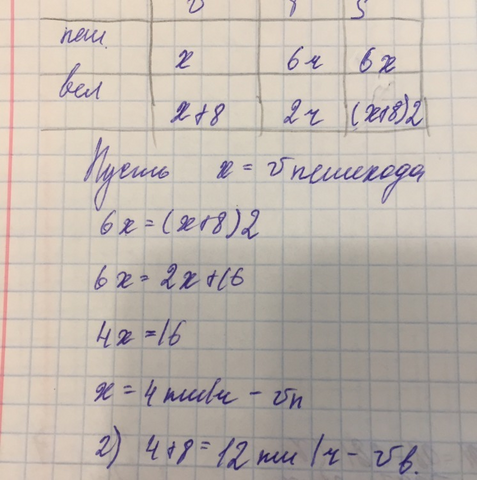 v t S
пеш. x 6ч 6x
вел x+8 2ч (x+8)2
Пусть x = v пешехода
6x=(x+8)2
6x=2x+16
4x=16
x=4 км/ч - vп
2) 4+8=12 км/ч - vв.